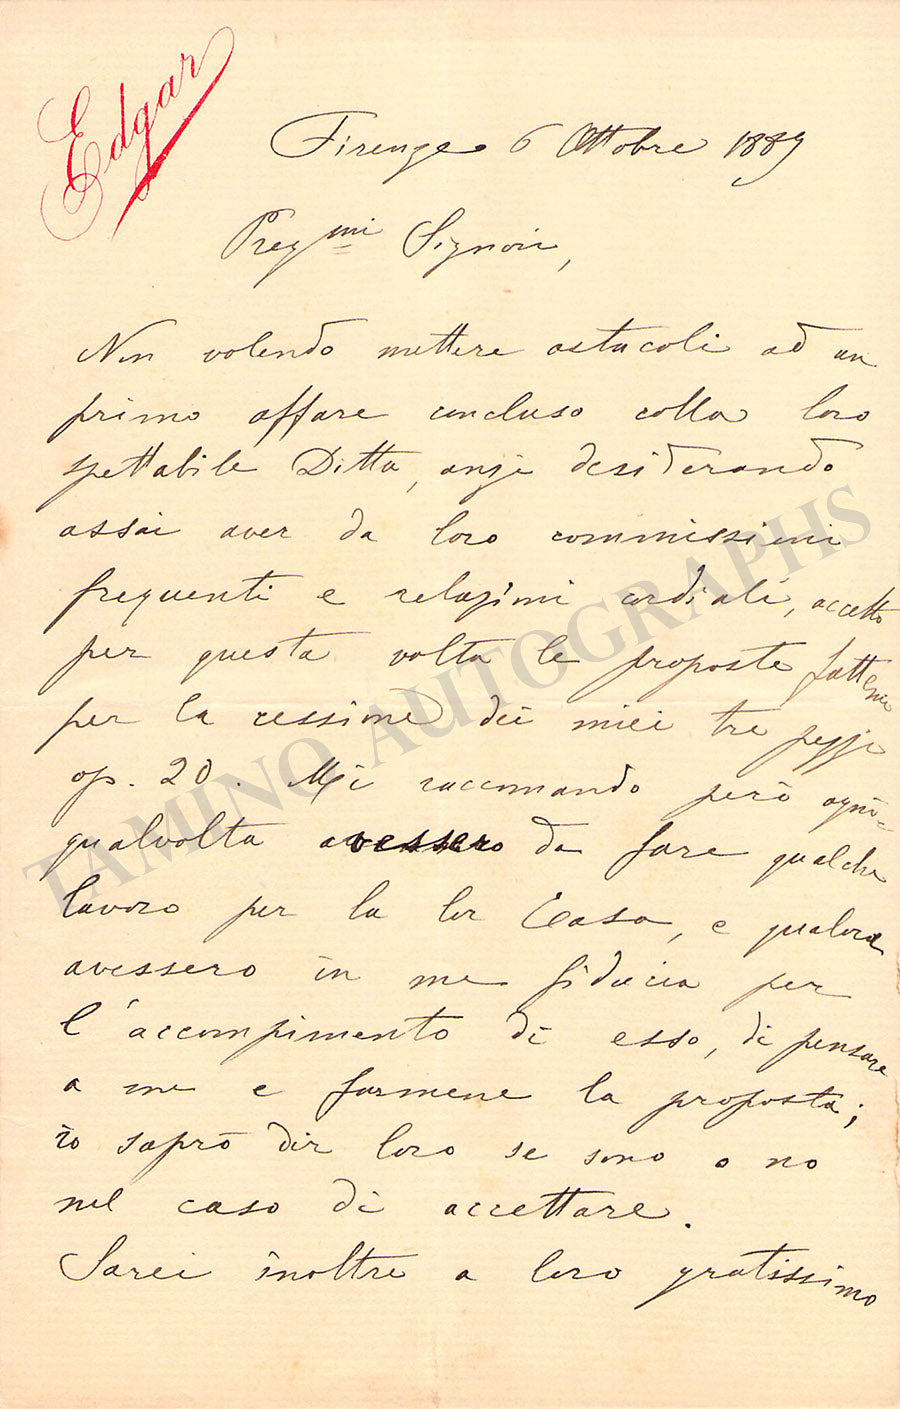 Edgar
Firenze 6 Ottobre 1889
Preg.mi Signori,
Non volendo mettere ostacoli ad un
primo affare concluso colla loro
spettabile Ditta, anzi desiderando
assai aver da loro commissioni
frequenti e relazioni cordiali, accetto
per questa volta le proposte fattemi
per la cessione dei miei tre pezzi
op. 20. Mi raccomando però ogni=
qualvolta avessero da fare qualche
lavoro per la lor Casa, e qualora
avessero in me fiducia per
l'accompimento di esso, di pensare
a me e farmene la proposta;
io saprò dir loro se sono o no
nel caso di accettare.
Sarei inoltre a loro gratissimo
TAMINO AUTOGRAPHS